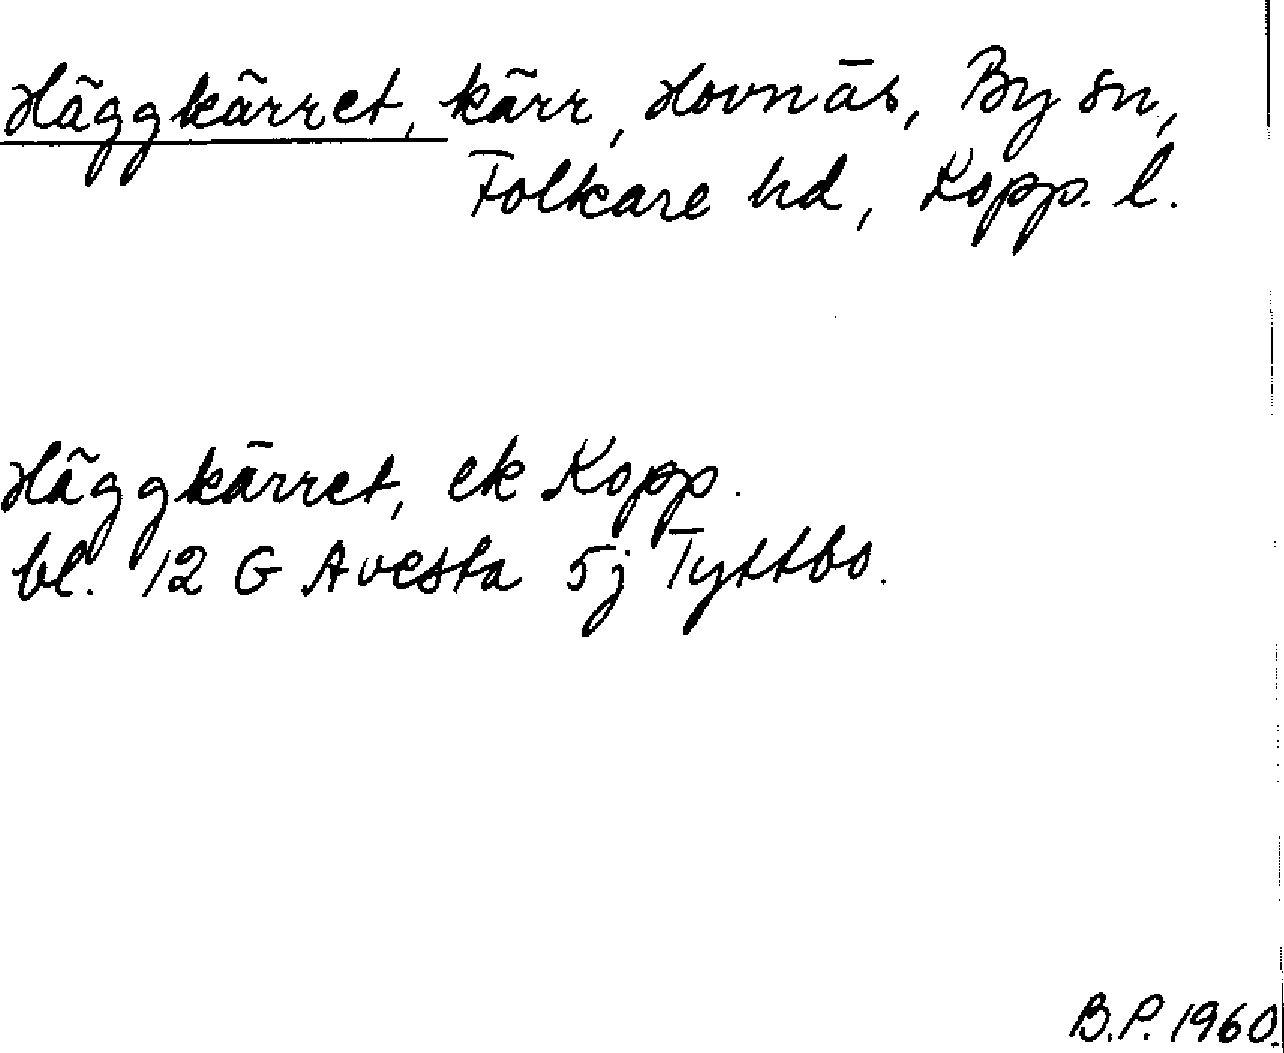 Häggkärret, kärr, Hovnäs, By sn,
Folkare hd, Kopp. l.
Häggkärret, ek Kopp.
bl. 12 G Avesta 5j Tyttbo.
B.P. 1960.